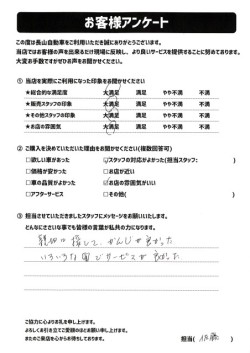 お客様アンケート
この度は長山自動車をご利用いただき誠にありがとうございます。
当店ではお客様の声を出来るだけ現場に反映し、より良いサービスを提供することに努めております。
大変お手数ですがぜひお声をお聞かせください。
① 当店を実際にご利用になった印象をお聞かせください
★総合的な満足度 大満足 満足 やや不満 不満
★販売スタッフの印象 大満足 満足 やや不満 不満
★その他スタッフの印象 大満足 満足 やや不満 不満
★お店の雰囲気 大満足 満足 やや不満 不満
② ご購入を決めていただいた理由をお聞かせください(複数回答可)
□欲しい車があった ☑スタッフの対応がよかった(担当スタッフ: )
□価格が安かった □お店が近い
□車の品質がよかった ☑お店の雰囲気がいい
□アフターサービス □その他( )
③ 担当させていただきましたスタッフにメッセージをお願いいたします。
どんなにささいな事でも皆様の言葉が私共の力になります。
親切に接して、かんじが良かった
いろいろな面でサービスが良かった
ご協力に心よりお礼を申し上げます。
よろしくお引き立てご愛顧のほどお願い申し上げます。
またのご来店を心からお待ちしております。
担当( 佐藤 )